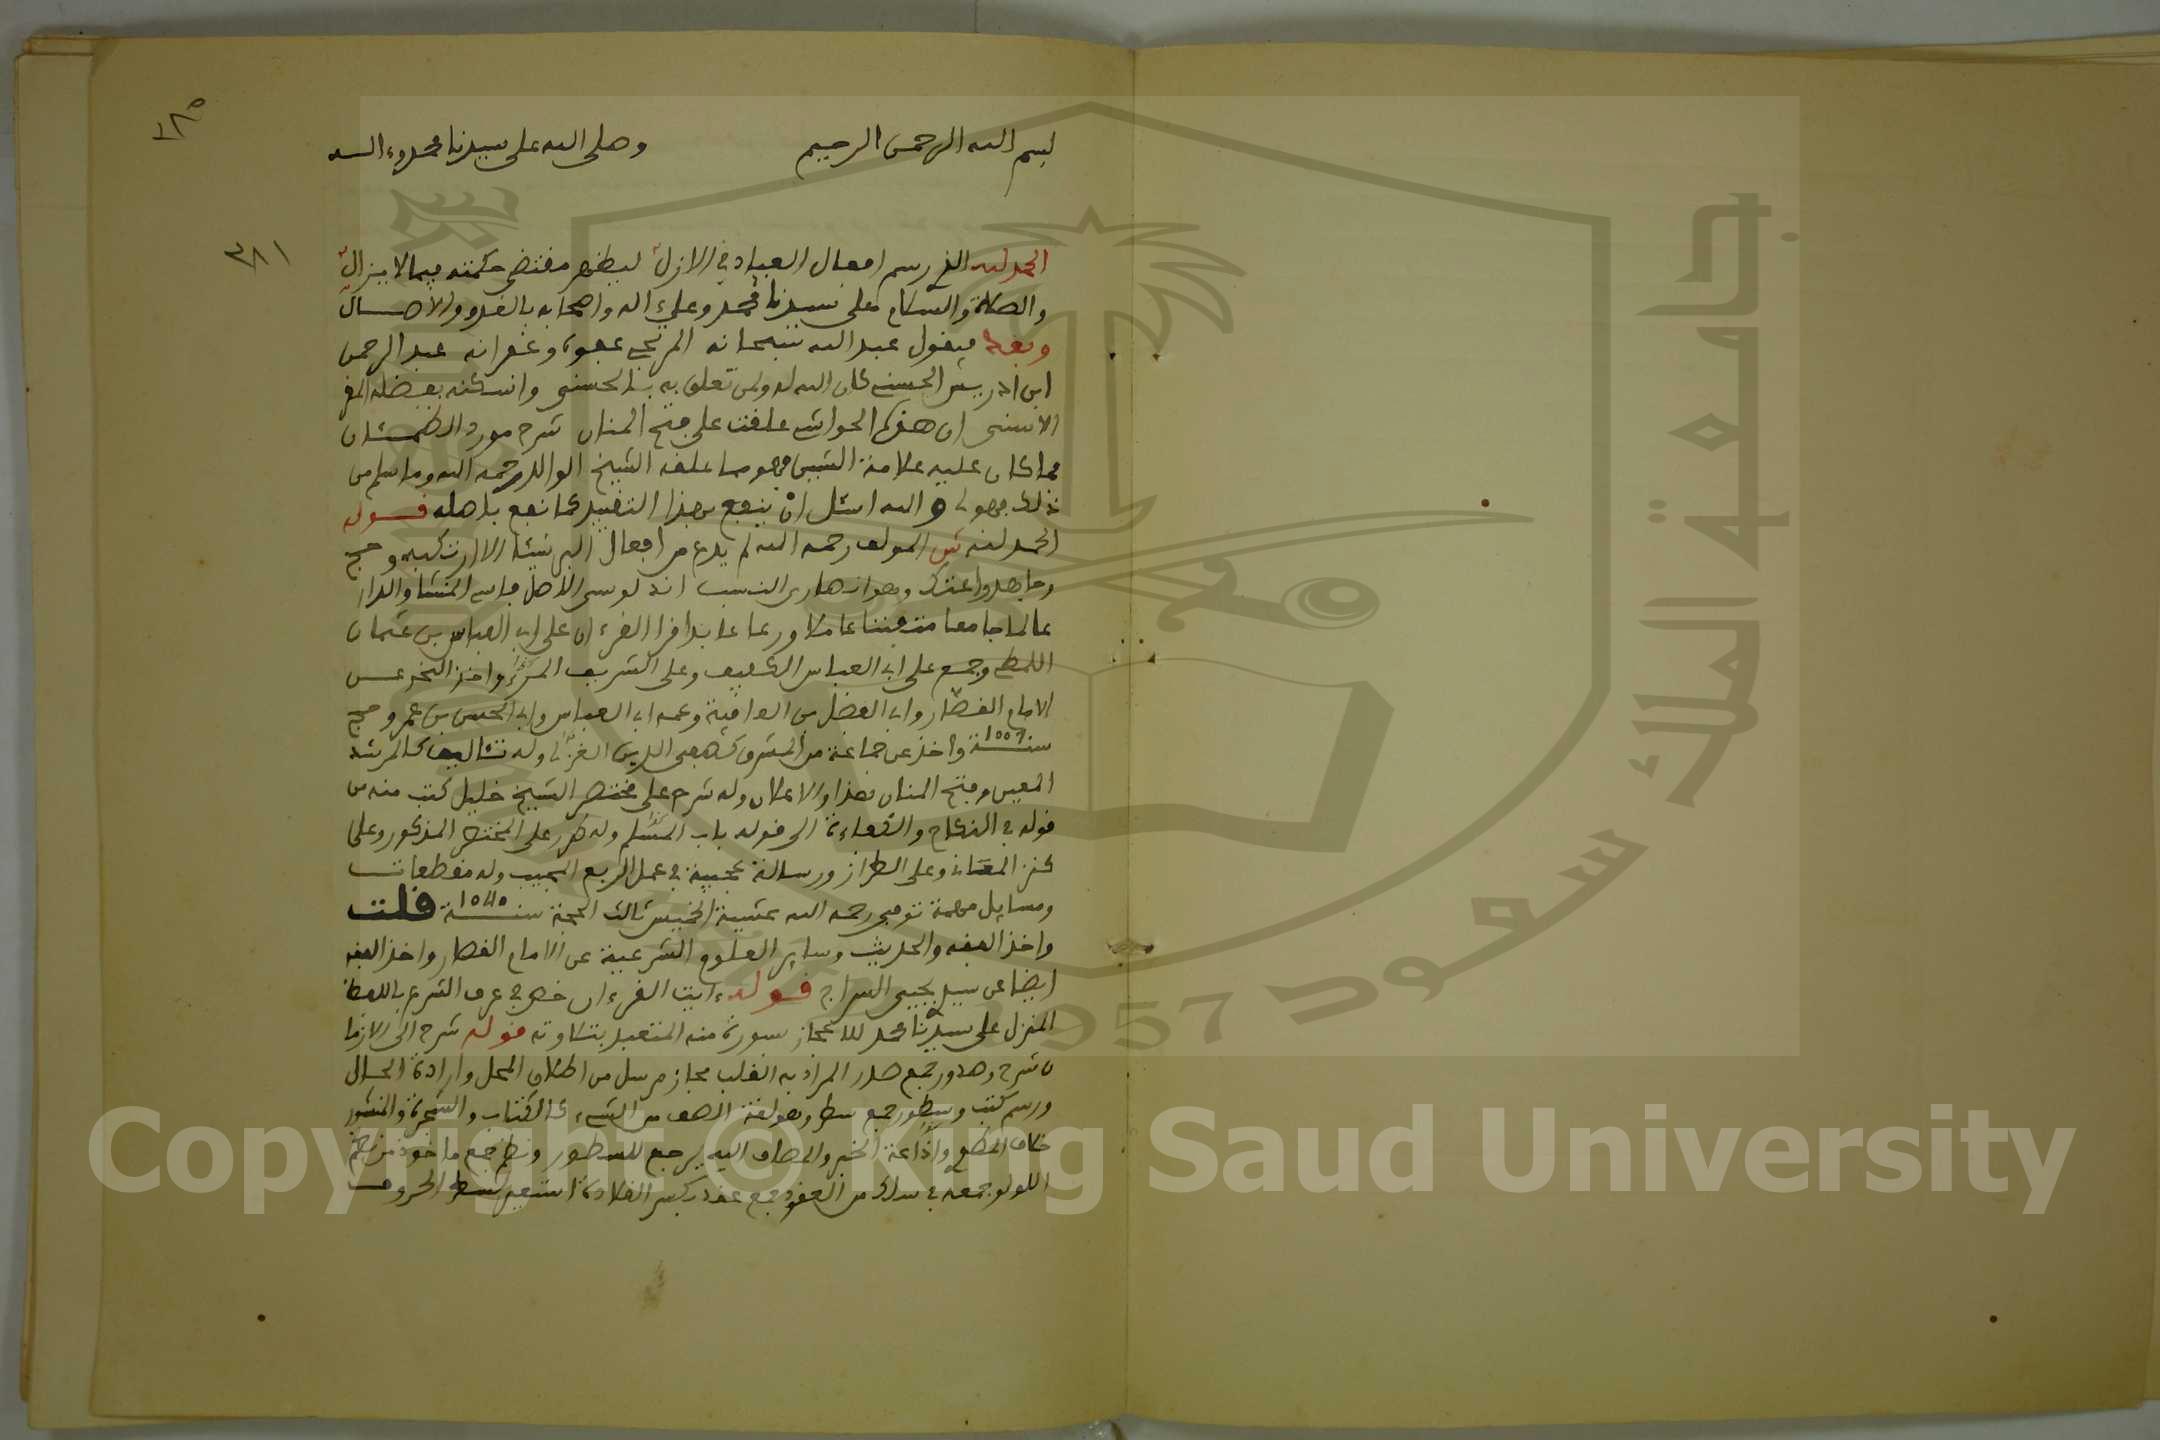 ١٨٥
٣٨١
بسم الله الرحمن الرحيم وصلى الله على سيدنا محمد وءاله
الحمد لله الذي رسم افعال العباد في الازل ليظهر مقتضى حكمته فيما لا يزال
والصلاة والسلام على سيدنا محمد وعلى ءاله واصحابه بالغدو والاصال
وبعد فيقول عبد الله سبحانه المرتجي عفوه وغفرانه عبد الرحمن
ابن ادريس الحسني كان الله له ولمن تعلق به بالحسنى واسكنه بفضله المقر
الاسنى ان هذه الحواشي علقت على فتح المنان شرح مورد الظمئان
فما كان عليه علامة الشين فهو مما علقه الشيخ الوالد رحمه الله وما سلم من
ذلك فهو لي والله اسئل ان ينفع بهذا التقييد كما نفع باصله قوله
الحمد لله ش المولف رحمه الله لم يدع من افعال البر شيئا الا ارتكبه وحج
وجاهد واعتكف وهو انصاري النسب اندلوسي الاصل فاسي المنشا والدار
عالما جامعا متفننا عاملا ورعا عابدا قرا القرءان على ابي العباس بن عثمان
اللمطي وجمع على ابي العباس الكفيف وعلى الشريف المري واخذ النحو عن
الامام القصار وابي الفضل بن العافية وعمه ابي العباس وابي الحسن بن عمر وحج
سنة واخذ عن جماعة من المشرق كصفي الدين الغزي وله تئاليف كالمرشد
المعين وفتح المنان هذا والاعلان وله شرح على مختصر الشيخ خليل كتب منه من
قوله في النكاح والكفاءة الى قوله باب السلم وله طرر على المختصر المذكور وعلى
كنز المعاني وعلى الطراز ورسالة عجيبة في عمل الربع المجيب وله مقطعات
ومسايل مهمة توفي رحمه الله عشية الخميس ثالث الحجة سنة قلت
واخذ الفقه والحديث وساير العلوم الشرعية عن الامام القصار واخذ الفقه
ايضا عن سيدي يحيى السراج قوله ءايت القرءان خص في عرف الشرع باللفظ
المنزل على سيدنا محمد للاعجاز بسورة منه المتعبد بتلاوته قوله شرح الى الازما
ن شرح وصدور جمع صدر المراد به القلب مجاز مرسل من اطلاق المحل وارادة الحال
ورسم كتب وسطور جمع سطر وهو لغة الصف من الشيء كالكتاب والشجرة والنشور
خلاف الطي واذاعة الخبر والمضاف اليه يرجع للسطور ونظم جمع ماخوذ من نظم
اللولو جمعه في سلك من العقود جمع عقد بكسر القلادة استعير لسطر الحروف
جامعة الملك سعود
1957
Copyright © King Saud University